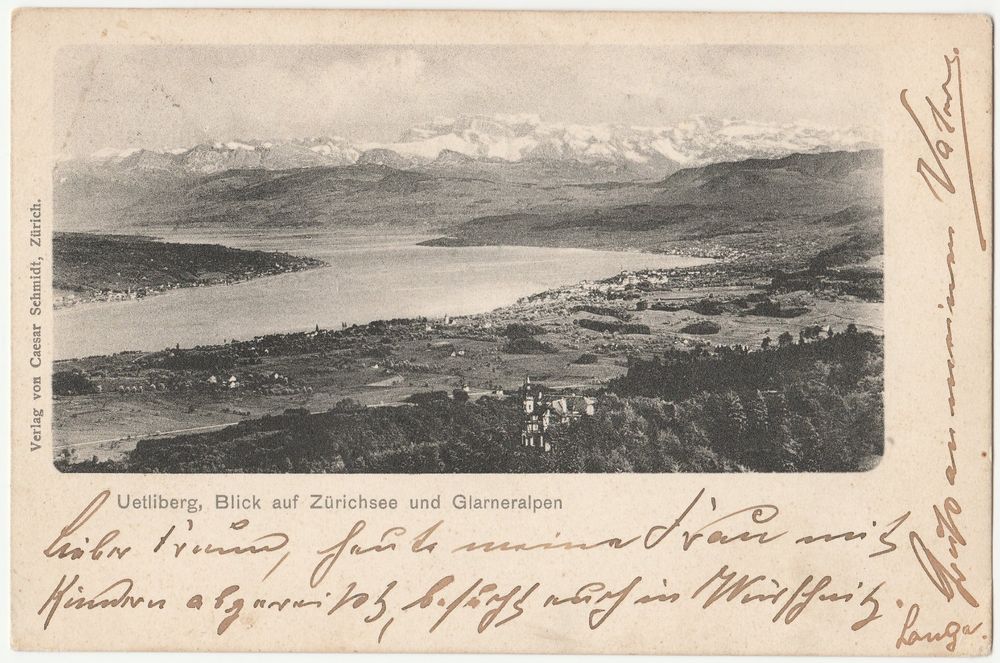 Verlag von Caesar Schmidt, Zürich.
Uetliberg, Blick auf Zürichsee und Glarneralpen
Lieber Freund, heute meine Frau mit
Kindern abgereist, besucht euch in Würschnitz.
Gruß an meinen Vater.
Langa.